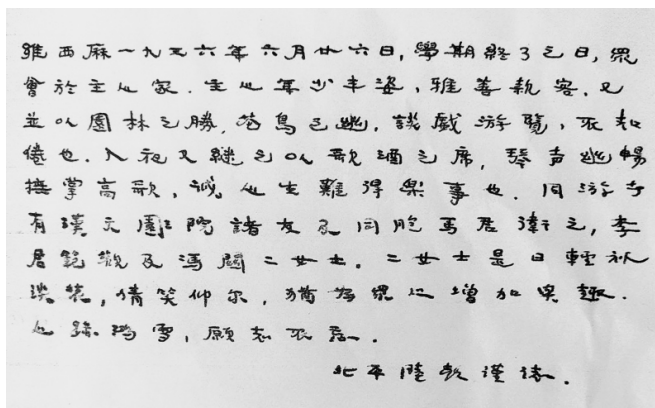 維西厤一九五六年六月廿六日，學期終了之日，眾
會於主人家．主人年少丰姿，雅善款客．又
並以園林之勝，花鳥之幽，談戲游覽，不知
倦也．入夜又繼之以歌酒之席，琴声幽暢
撫掌高歌，誠人生難得樂事也．同游者
有漢文圖院諸友及同胞馬君衛之，李
君範觀及馮關二女士．二女士是日輕衫
淡裝，倩笑仰尔，猶為眾人增加興趣．
人蹤鴻雪，願志不忘．
北平陸乾謹誌．